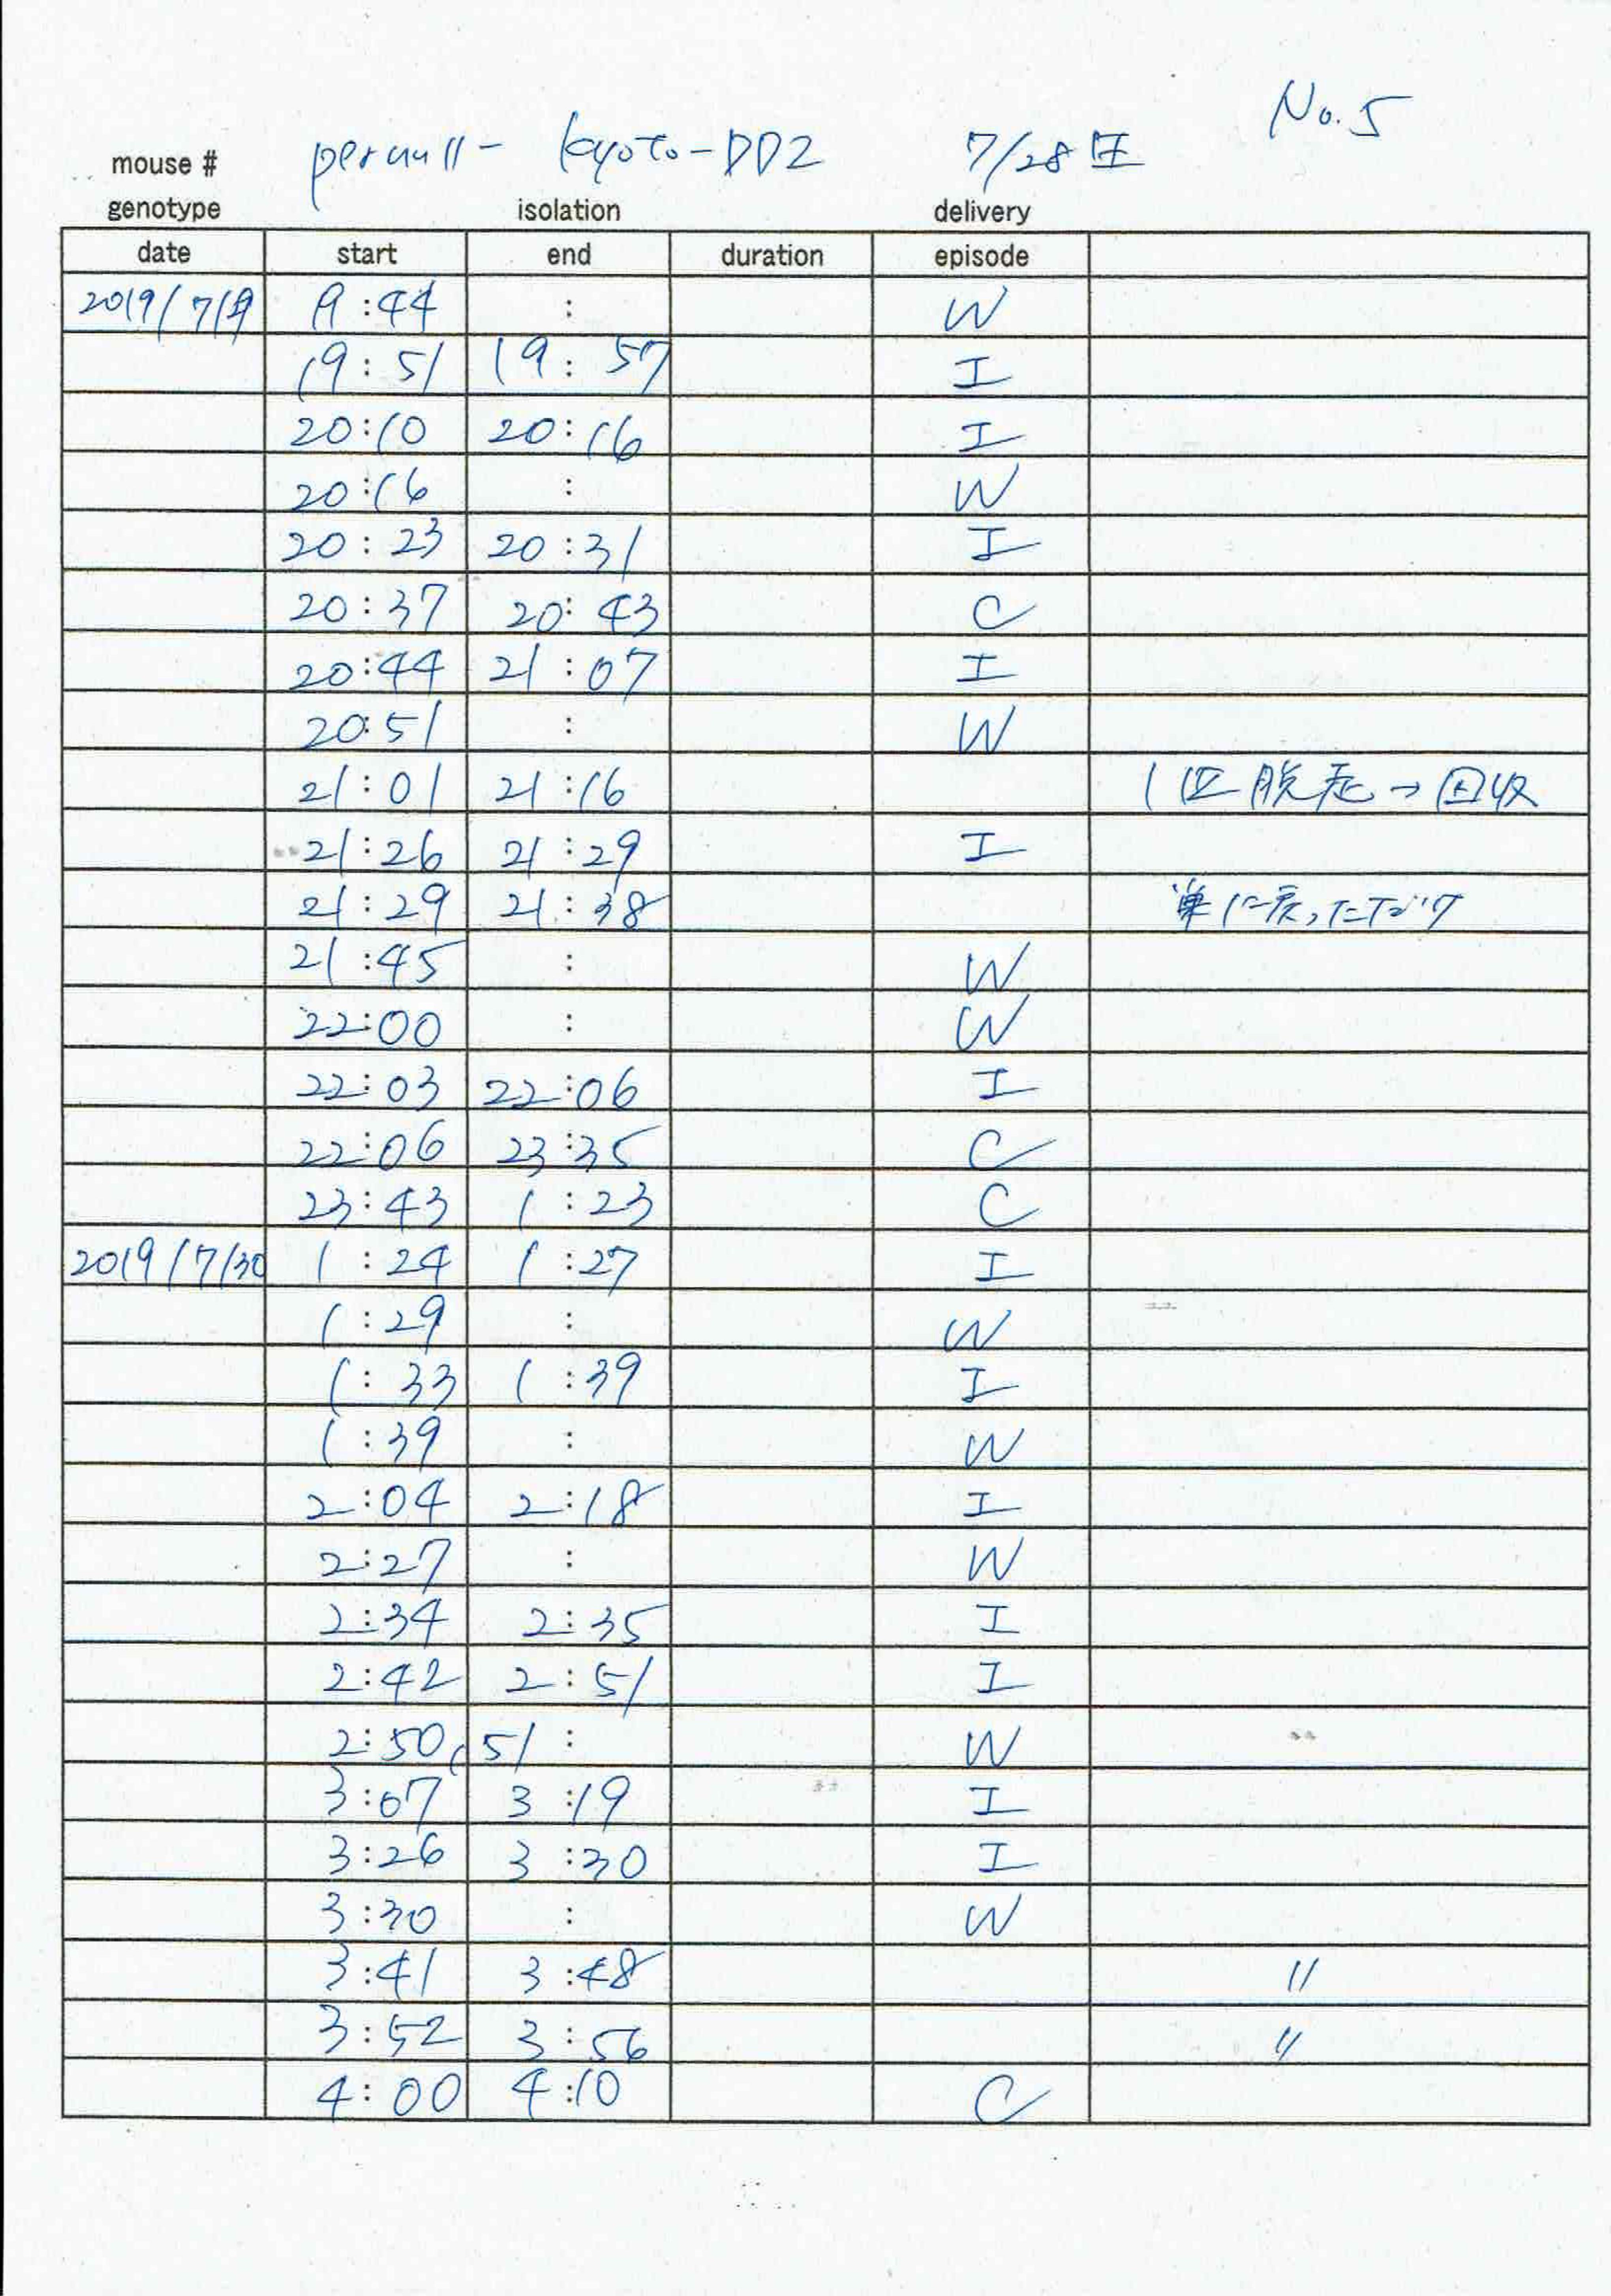 No.5
mouse # pernull- kyoto-DD2 7/28 生
genotype isolation delivery
date start end duration episode
2019/7/29 19:44 : W
19:51 19:57 I
20:10 20:16 I
20:16 : W
20:23 20:31 I
20:37 20:43 C
20:44 21:07 I
20:51 : W
21:01 21:16 1匹脱走→回収
21:26 21:29 I
21:29 21:38 巣に戻っただけ
21:45 : W
22:00 : W
22:03 22:06 I
22:06 23:35 C
23:43 1:23 C
2019/7/30 1:24 1:27 I
1:29 : W
1:33 1:39 I
1:39 : W
2:04 2:18 I
2:27 : W
2:34 2:35 I
2:42 2:51 I
2:50, 51 : W
3:07 3:19 I
3:26 3:30 I
3:30 : W
3:41 3:48 〃
3:52 3:56 〃
4:00 4:10 C